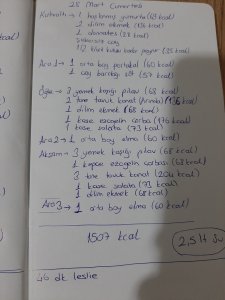 28 Mart Cumartesi
Kahvaltı → 1 haşlanmış yumurta (69 kcal)
1 dilim ekmek (68 kcal)
1 domates (28 kcal)
şekersiz çay
1/2 kibrit kutusu kadar peynir (35 kcal)
Ara 1 → 1 orta boy portakal (60 kcal)
1 çay bardağı süt (57 kcal)
Öğle → 3 yemek kaşığı pilav (68 kcal)
2 tane tavuk kanat (136 kcal)
1 dilim ekmek (68 kcal)
1 kase ezogelin çorba (176 kcal)
1 kase salata (73 kcal)
Ara 2 → 1 orta boy elma (60 kcal)
Akşam → 3 yemek kaşığı pilav (68 kcal)
1 kepçe ezogelin çorbası (68 kcal)
3 tane tavuk kanat (204 kcal)
1 kase salata (73 kcal)
1 dilim ekmek (68 kcal)
Ara 3 → 1 orta boy elma (60 kcal)
1507 kcal
2,5 lt su
45 dk leslie